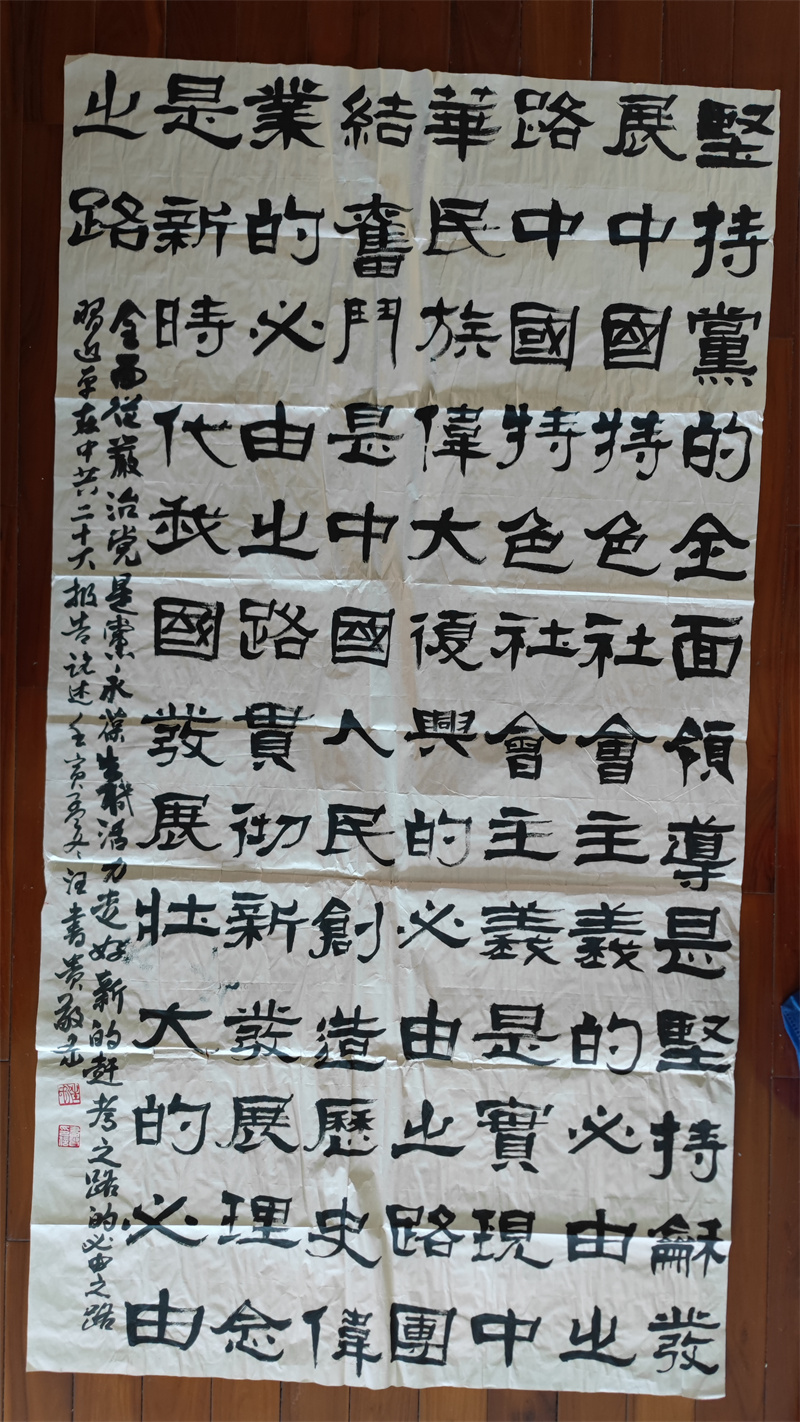 堅持黨的全面領導是堅持龢發
展中國特色社會主義的必由之
路中國特色社會主義是實現中
華民族偉大復興的必由之路團
結奮鬥是中國人民創造歷史偉
業的必由之路貫彻新發展理念
是新時代我國發展壯大的必由
之路
全面從嚴治党是黨永葆生機活力走好新的赶考之路的必由之路
習近平在中共二十大报告论述壬寅孟冬汪書贵敬录